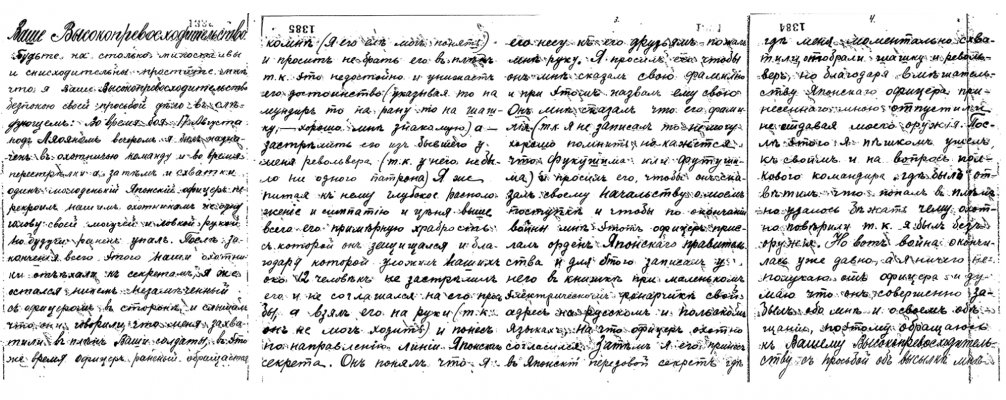 Ваше Высокопревосходительство
Будьте на столько милостивы
и снисходительны простите мнѣ
что я Ваше Высокопревосходительство
безпокою своей просьбой дѣло въ слѣ-
дующемъ: Во время боя 17 Августа
подъ Ляояномъ вечеромъ я былъ назна-
ченъ въ охотничью команду и во время
перестрѣлки а затѣмъ и схватки
одинъ молоденькій Японскій офицеръ пе-
рекроилъ нашимъ охотникамъ не одну
голову своей могучей и ловкой рукой
но будучи раненъ упалъ. Послѣ за-
кончения всего этого наши охотни-
ки отъѣхали къ секретамъ, я же
остался никемъ незамѣченный
съ офицеромъ въ сторонѣ и слышалъ
что они говорили, что меня захва-
тили въ плѣнъ Ваши солдаты, въ это
же время офицеръ раненый обращается
1385
комнѣ (я его еле могъ понять)
и проситъ не брать его въ плѣнъ
т.к. это недостойно и унижаетъ
его достоинство (указывая то на
мундиръ то на рану то на шаш-
ку, — хорошо мнѣ знакомую) а —
застрѣлить его изъ бывшего у
меня револьвера (т.к. у него не бы-
ло ни одного патрона) Я же
питая къ нему глубокое располо-
женіе и симпатію и цѣня выше
всего его примѣрную храбрость
съ которой онъ защищался и бла-
годаря которой уложилъ нашихъ
око 12 человѣкъ не застрѣлилъ
его и не соглашался на его прось-
бы, а взялъ его на руки (т.к.
онъ не могъ ходить) и понесъ
по направленію линіи Японскаго
секрета. Онъ понялъ что я
3.
его несу къ его друзьямъ пожалъ
мнѣ руку. Я просилъ его чтобы
онъ мнѣ сказалъ свою фамилію
и при этомъ назвалъ ему свою
Онъ мнѣ сказалъ что его фами-
лія (т.к я не записалъ то не могу
хорошо помнить но кажется
что Фукушима или Футуши-
ма) и просилъ его, чтобы онъ ска-
залъ своему начальству о моемъ
поступкѣ и чтобы по окончаніи
войны мнѣ этотъ офицеръ прис-
лалъ орденъ Японскаго правитель-
ства и для этого записалъ у
него въ книжкѣ при маленькомъ
электрическомъ фонарикѣ свой
адресъ на русскомъ и польскомъ
языкахъ. На что офицеръ охотно
согласился. Затѣмъ я его принесъ
въ Японскій передовой секретъ гдѣ
1384
4.
гдѣ меня моментально схва-
тили, отобрали шашку и револь-
веръ, но благодаря вмѣшатель-
ству Японскаго офицера при-
несеннаго мною отпустили
не отдавая моего оружія. Пос-
лѣ этого я пѣшкомъ ушелъ
къ своимъ и на вопросъ пол-
кового командира „гдѣ былъ" от-
вѣтилъ что попалъ въ плѣнъ
но удалось бѣжать чему охот-
но повѣрили т.к. я былъ безъ
оружія. Но вотъ война окончи-
лась уже давно, а я ничего не
получаю отъ офицера и ду-
маю что онъ совершенно за-
былъ обо мнѣ и о своемъ обѣ-
щаніи, поэтому обращаюсь
къ Вашему Высокопревосходитель-
ству съ просьбой объ высылкѣ мнѣ